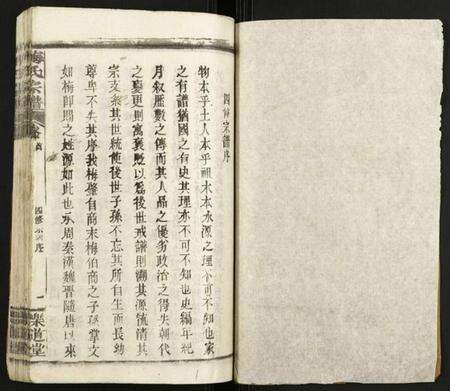 四修宗譜序
物本乎土人本乎祖水本水源之理不可不知也家
之有譜猶國之有史其理亦不可不知也史編年紀
月叙歷數之傳而其人品之優劣政治之得失朝代
之變更則寓褒貶以爲後世戒譜則溯其源流清其
宗支叙其世統使後世子孫不忘其所自生而長幼
尊卑不失其序我梅肇自商末梅伯商之子孫掌文
如梅卽賜之姓源如此也承周秦漢魏晋隨唐以來
梅氏宗譜
卷
四修宗譜序
一
樂道堂